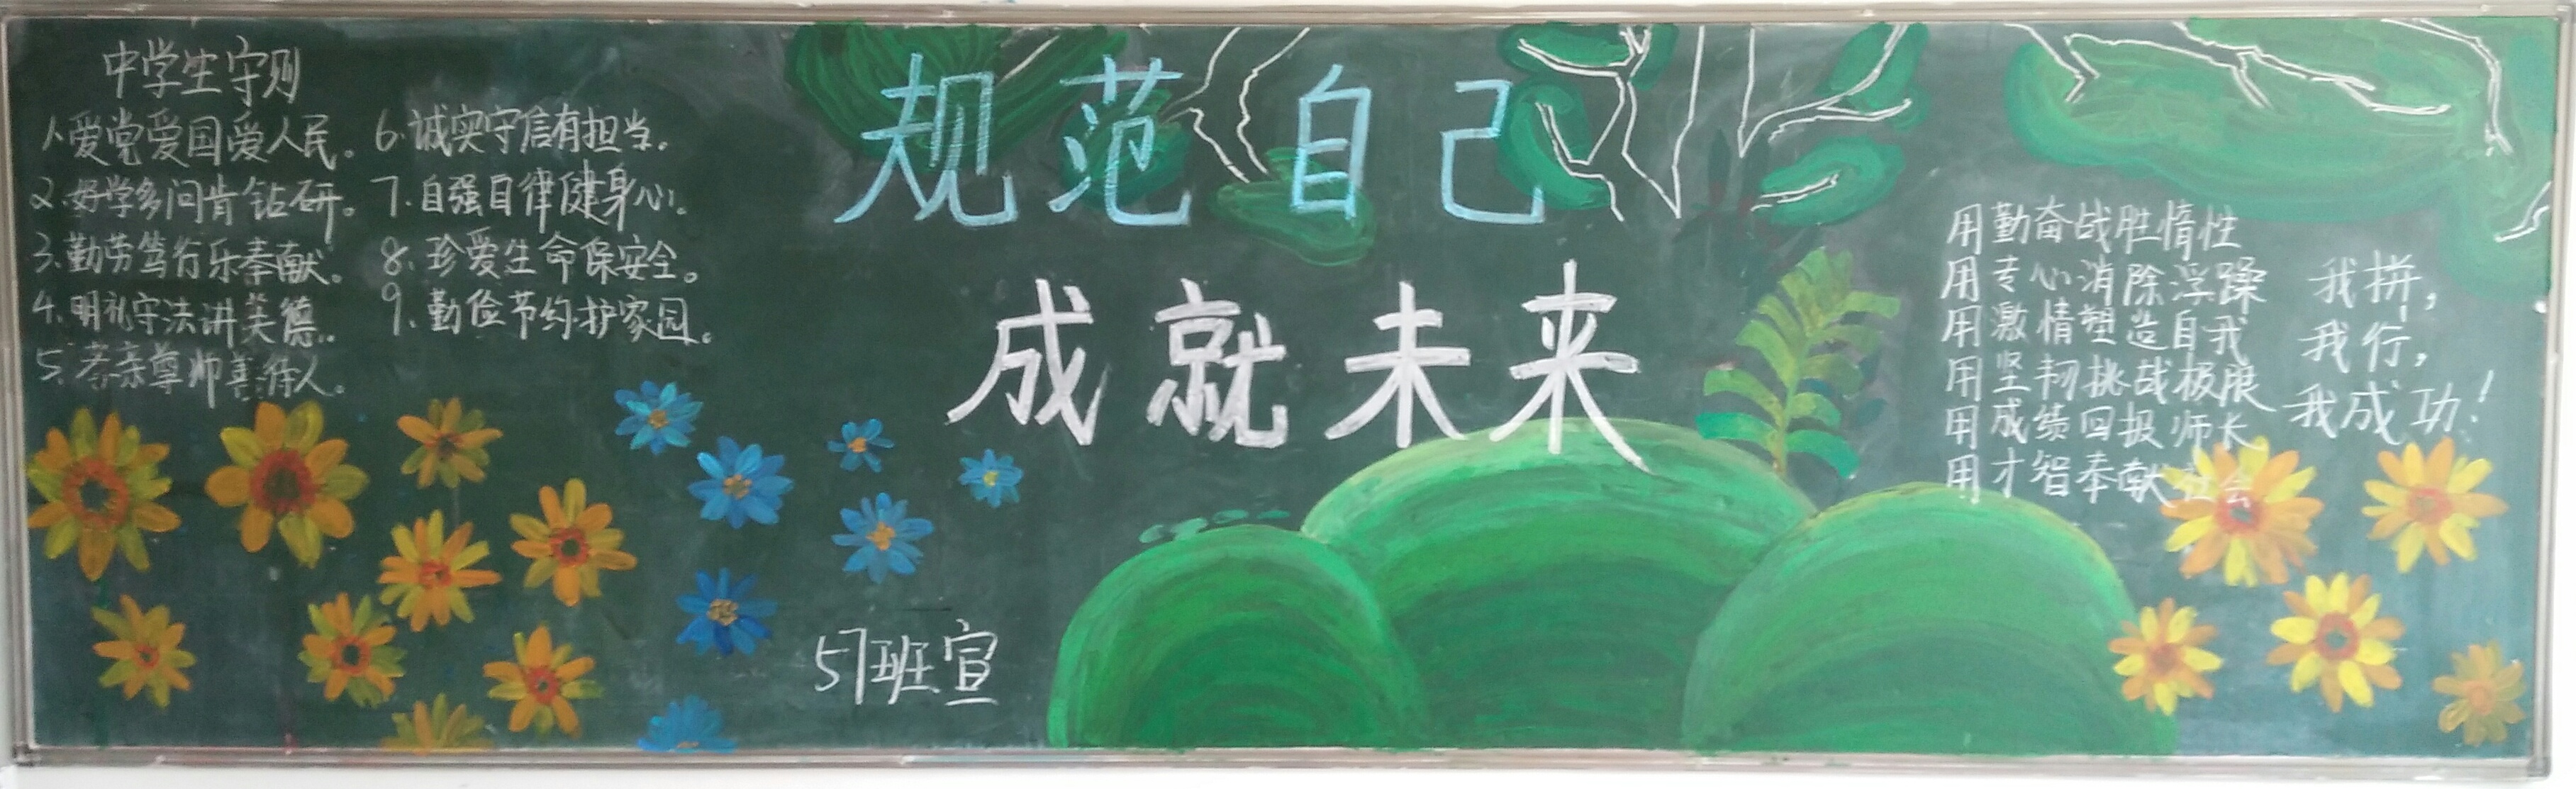 中学生守则
1.爱党爱国爱人民。
2.好学多问肯钻研。
3.勤劳笃行乐奉献。
4.明礼守法讲美德。
5.孝亲尊师善待人。
6.诚实守信有担当。
7.自强自律健身心。
8.珍爱生命保安全。
9.勤俭节约护家园。
规范自己
成就未来
57班宣
用勤奋战胜惰性
用专心消除浮躁
用激情塑造自我
用坚韧挑战极限
用成绩回报师长
用才智奉献社会
我拼，
我行，
我成功！